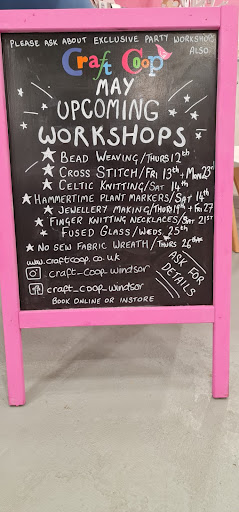 PLEASE ASK ABOUT EXCLUSIVE PARTY WORKSHOPS
ALSO
Craft Coop
MAY
UPCOMING
WORKSHOPS
BEAD WEAVING/THURS 12th
CROSS STITCH/FRI 13th, + MON 23rd
CELTIC KNITTING/SAT 14th
HAMMERTIME PLANT MARKERS/SAT 14th
JEWELLERY MAKING/THUR 19th + FRI 27
FINGER KNITTING NECKLACES/SAT 21ST
FUSED GLASS/WEDS 25th
NO SEW FABRIC WREATH/THURS 26th
www.craftcoop.co.uk
craft_coop_windsor
craft_coop_windsor
ASK FOR
DETAILS
BOOK ONLINE OR INSTORE